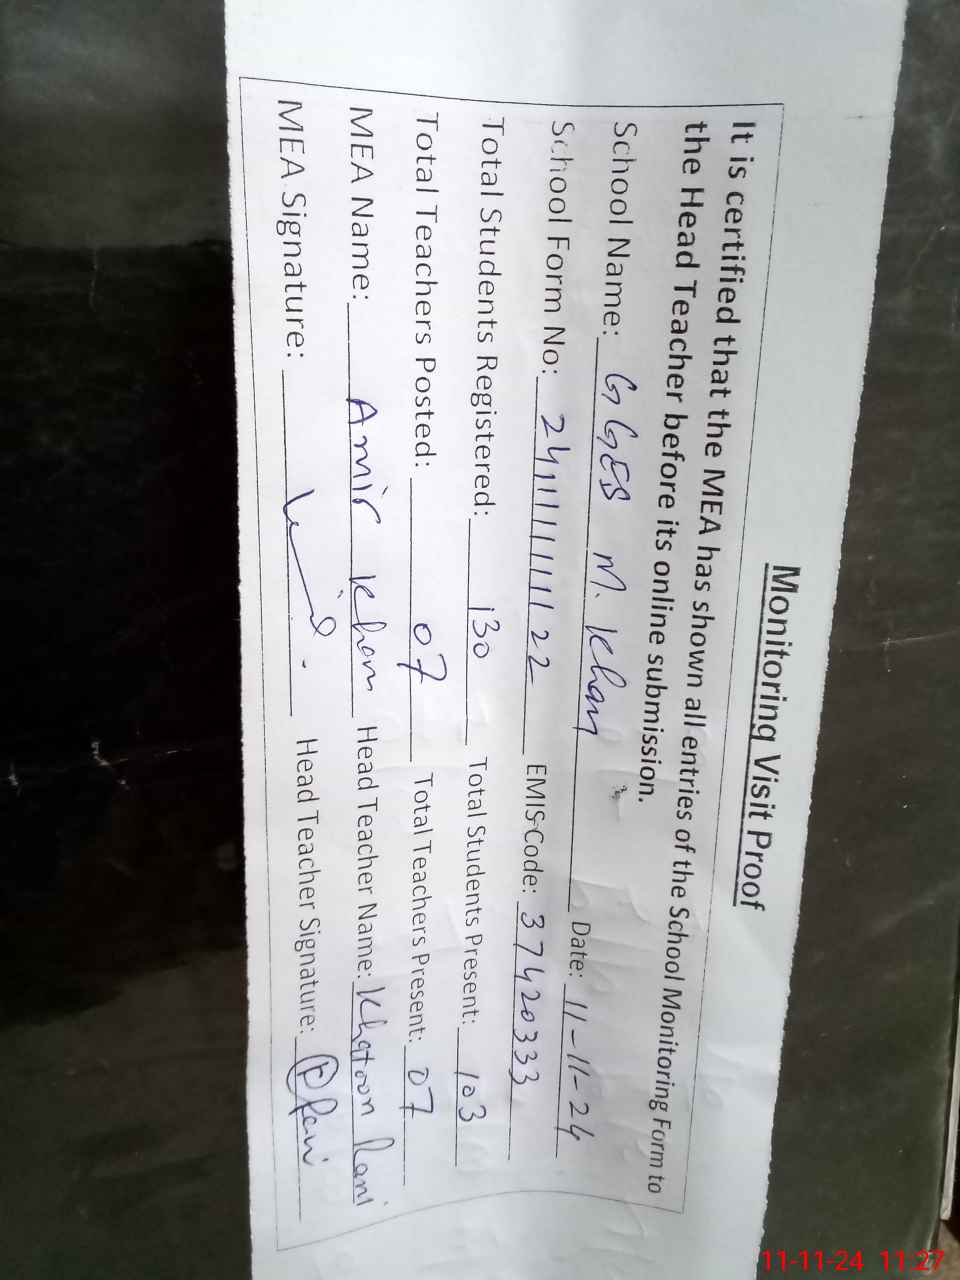 Monitoring Visit Proof
It is certified that the MEA has shown all entries of the School Monitoring Form to
the Head Teacher before its online submission.
School Name: GGES M. Khan Date: 11-11-24
School Form No: EMIS-Code: 37420333
Total Students Registered: 130 Total Students Present: 103
Total Teachers Posted: 07 Total Teachers Present: 07
MEA Name: Amir Khan Head Teacher Name: Khatoon Rani
MEA Signature: Head Teacher Signature:
11-11-24 11:27